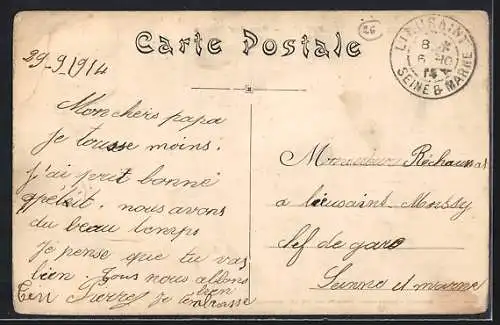 Carte Postale
26
LIEUSAINT
8
6 - 10
14
SEINE & MARNE
29-9-1914
Mon chers papa
Je tousse moins.
j'ai prit bonne
apétit. nous avons
du beau temps
Je pense que tu vas
bien. Tous nous allons
bien
Ton Pierre Je t'embrasse
Monsieur Réchaussat
a lieusaint Moissy
chef de gare
Seinne et marne